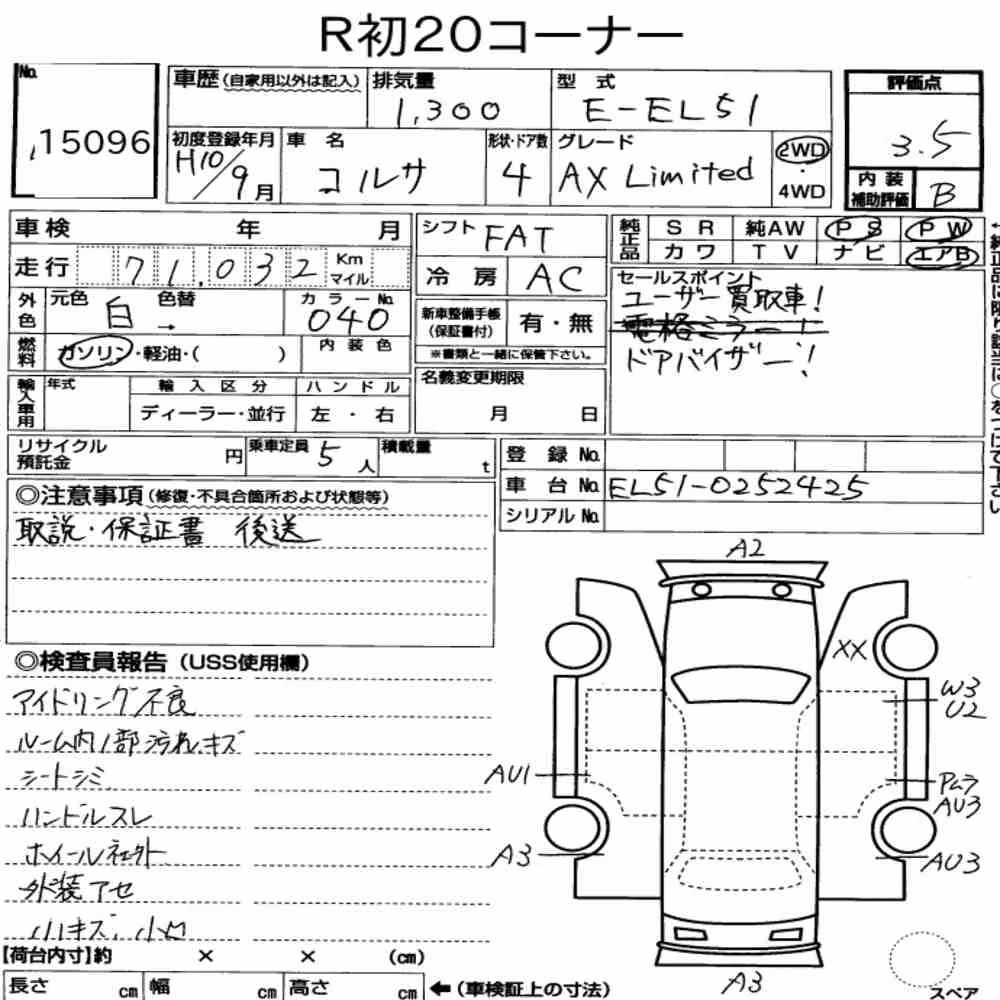 R初20コーナー
No.
15096
車歴(自家用以外は記入)
排気量
1,300
型式
E-EL51
評価点
3.5
初度登録年月
H10/9月
車名
コルサ
形状・ドア数
4
グレード
AX Limited
2WD
・
4WD
内装
補助評価
B
車検 年 月
走行 71,032 Km
マイル
外色
元色
白
色替
→
カラーNo.
040
燃料
ガソリン・軽油・( )
内装色
輸入車用
年式
輸入区分
ディーラー・並行
ハンドル
左・右
シフト
FAT
冷房
AC
新車整備手帳
(保証書付)
有・無
※書類と一緒に保管下さい。
名義変更期限
月 日
純正品
SR 純AW PS PW
カワ TV ナビ エアB
セールスポイント
ユーザー買取車!
電格ミラー!
ドアバイザー!
リサイクル
預託金
円
乗車定員
5人
積載量
t
登録No.
車台No. EL51-0252425
シリアルNo.
◎注意事項(修復・不具合箇所および状態等)
取説・保証書 後送
◎検査員報告(USS使用欄)
アイドリング不良
ルーム内1部汚れキズ
シートシミ
ハンドルスレ
ホイール社外
外装アセ
小キズ、小凹
【荷台内寸】約 × × (cm)
長さ cm 幅 cm 高さ cm ←(車検証上の寸法)
A2
XX
W3
U2
AU1
Pムラ
AU3
A3
AU3
A3
スペア